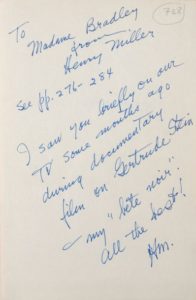 728
To
Madame Bradley
from
Henry Miller
see pp. 276-284
I saw you briefly on our
TV some months ago
during documentary
film on Gertrude Stein
— my "bête noir".
All the best!
HM.